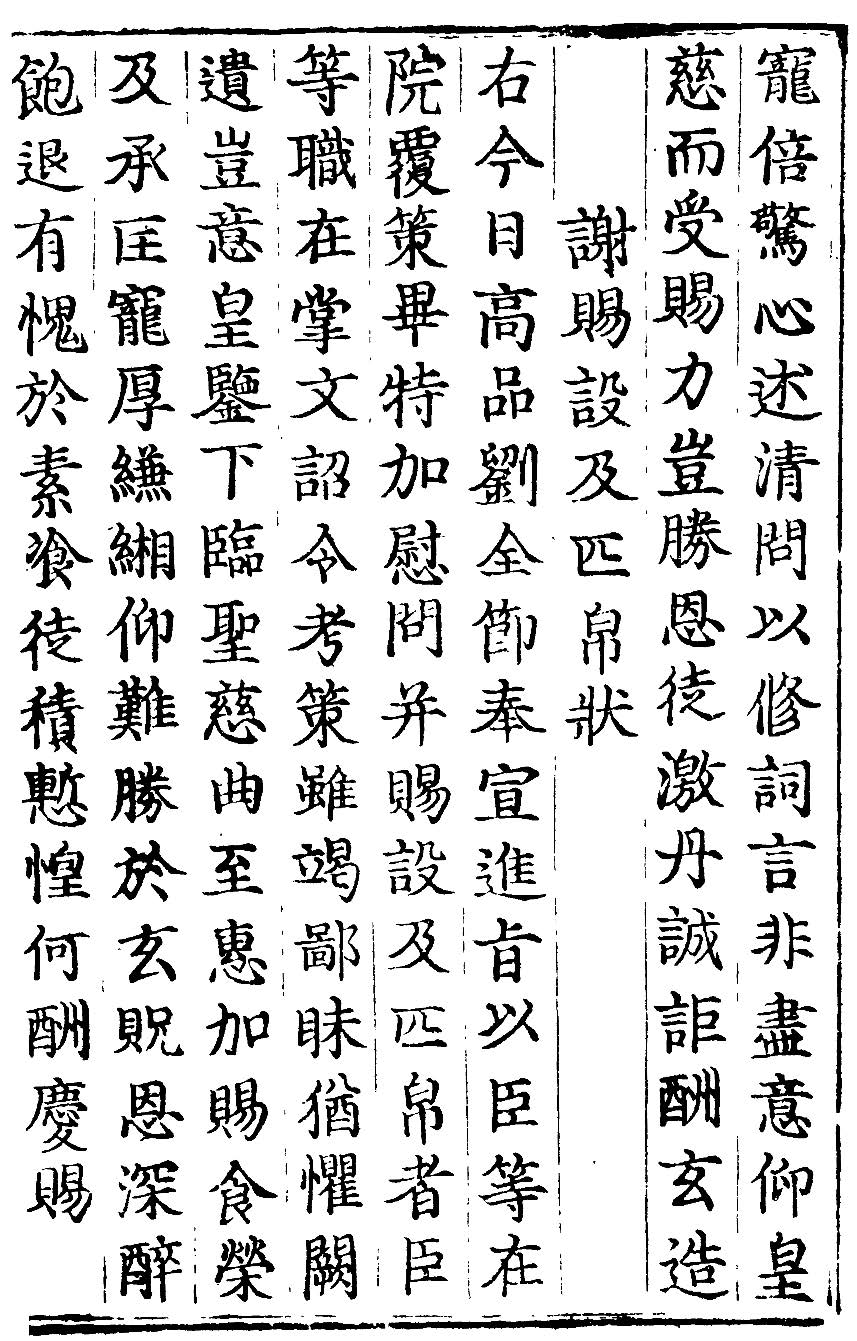 寵倍驚心述清問以修詞言非盡意仰皇
慈而受賜力豈勝恩徒激丹誠詎酬玄造
謝賜設及匹帛狀
右今日高品劉全節奉宣進旨以臣等在
院覆策畢特加慰問并賜設及匹帛者臣
等職在掌文詔令考策雖竭鄙昧猶懼闕
遺豈意皇鑒下臨聖慈曲至惠加賜食榮
及承匡寵厚縑緗仰難勝於玄貺恩深醉
飽退有愧於素飡徒積慙惶何酬慶賜